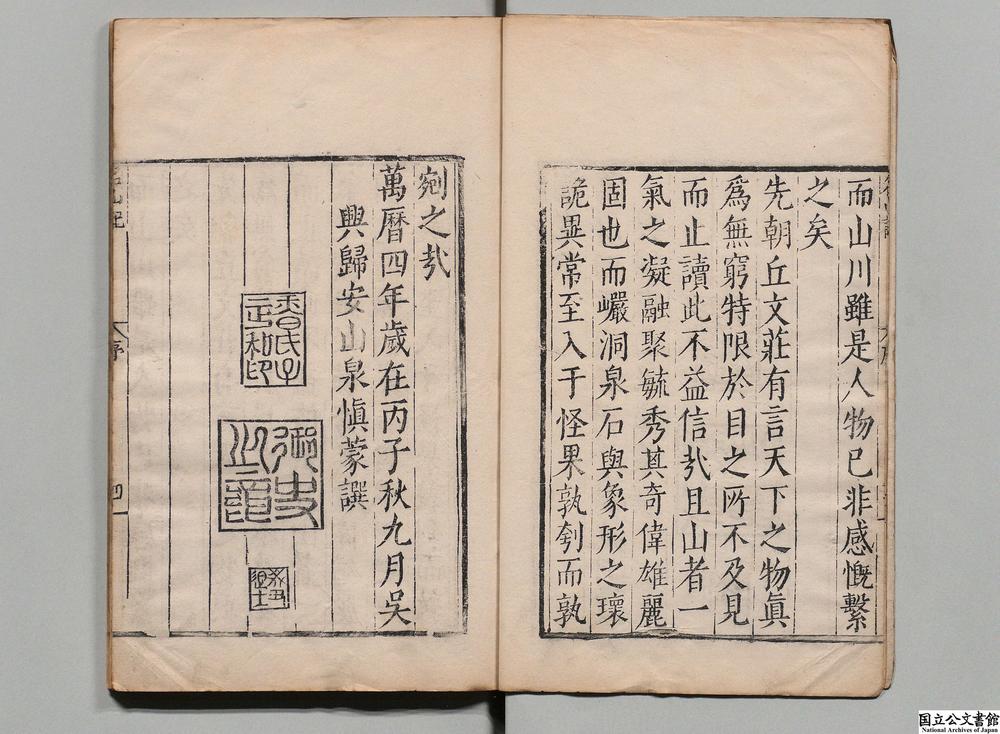 而山川雖是人物已非感慨繫
之矣
先朝丘文莊有言天下之物真
爲無窮特限於目之所不及見
而止讀此不益信㢤且山者一
氣之凝融聚毓秀其奇偉雄麗
固也而巖洞泉石與象形之瓌
詭異常至入于怪果孰刳而孰
宛之㢤
萬曆四年歲在丙子秋九月吳
興歸安山泉慎蒙譔
御史之章
序
四
国立公文書館
National Archives of Japan